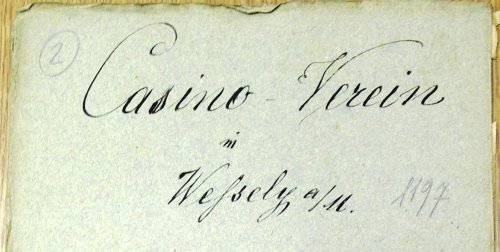 2
Casino-Verein
in
Weſsely a/M.
1197